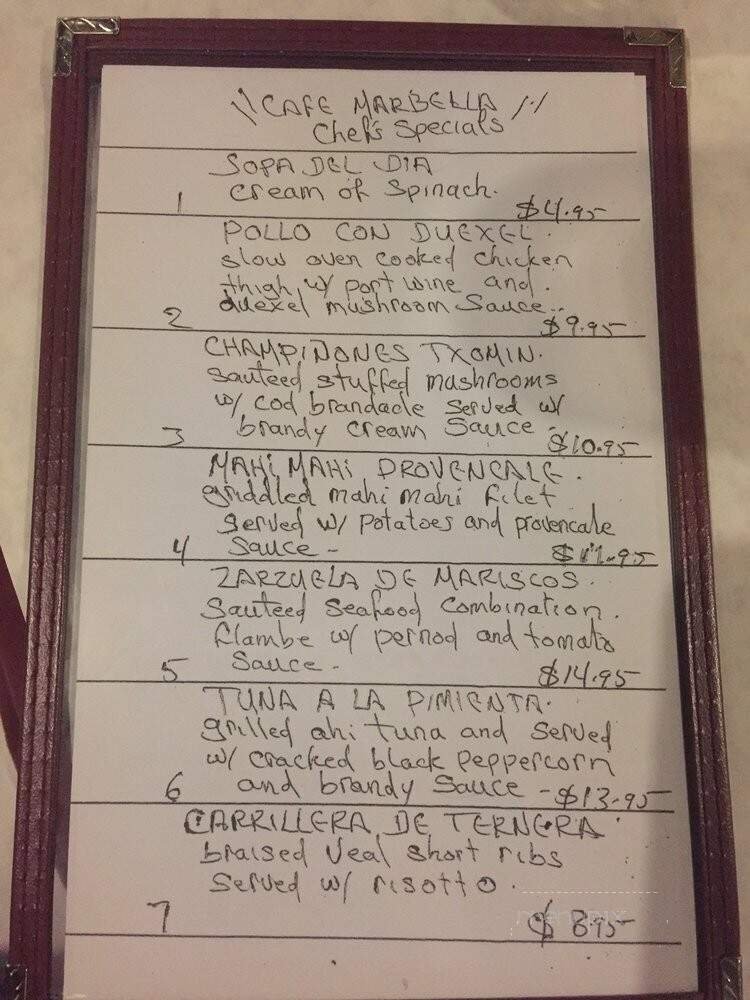 "CAFE MARBELLA"
Chef's Specials
SOPA DEL DIA
cream of Spinach.
1 $4.95
POLLO CON DUEXEL.
slow oven cooked chicken
thigh w/ port wine and.
duexel mushroom Sauce..
2 $9.95
CHAMPIÑONES TXOMIN.
sauteed stuffed mushrooms
w/ cod brandade served w/
brandy cream Sauce -
3 $10.95
MAHI MAHI PROVENCALE.
griddled mahi mahi filet
served w/ potatoes and provencale
4 Sauce - $11.95
ZARZUELA DE MARISCOS.
Sauteed Seafood Combination.
flambe w/ pernod and tomato
Sauce -
5 $14.95
TUNA A LA PIMIENTA.
grilled ahi tuna and served
w/ cracked black peppercorn
6 and brandy Sauce - $13.95
CARRILLERA DE TERNERA.
braised veal short ribs
served w/ risotto.
7 $8.95